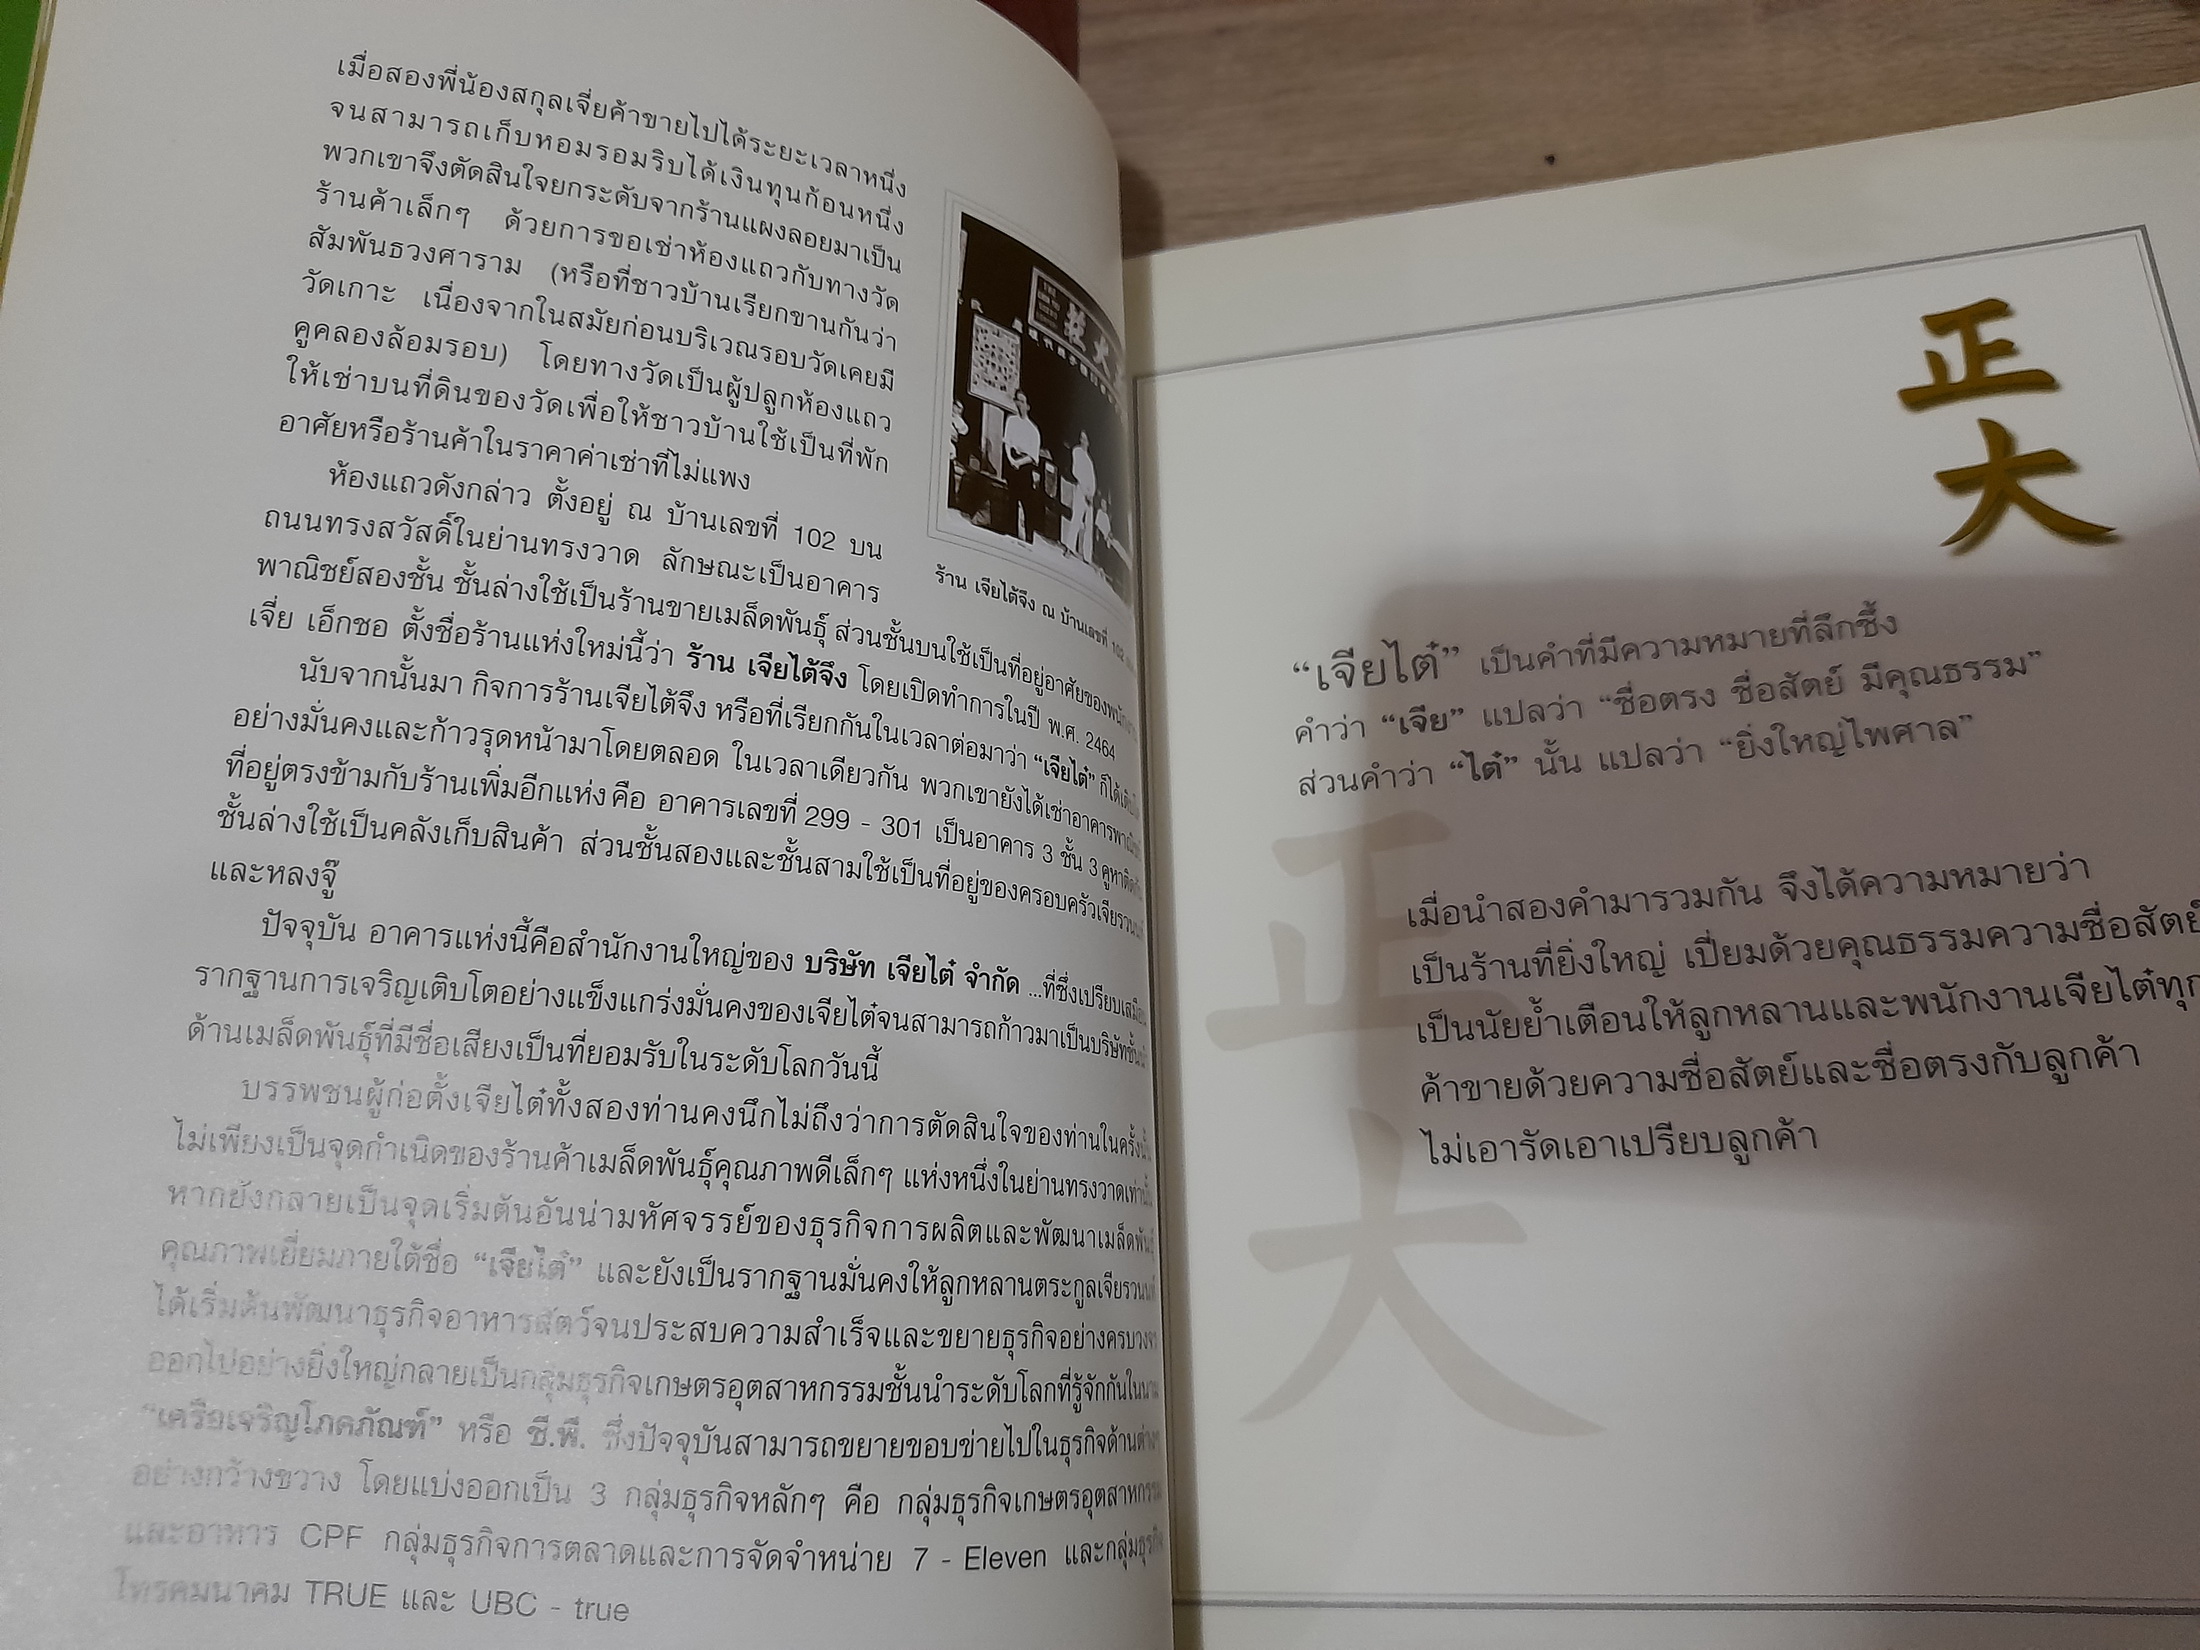 เมื่อสองพี่น้องสกุลเจี่ยค้าขายไปได้ระยะเวลาหนึ่ง
จนสามารถเก็บหอมรอมริบได้เงินทุนก้อนหนึ่ง
พวกเขาจึงตัดสินใจยกระดับจากร้านแผงลอยมาเป็น
ร้านค้าเล็กๆ ด้วยการขอเช่าห้องแถวกับทางวัด
สัมพันธวงศาราม (หรือที่ชาวบ้านเรียกขานกันว่า
วัดเกาะ เนื่องจากในสมัยก่อนบริเวณรอบวัดเคยมี
คูคลองล้อมรอบ) โดยทางวัดเป็นผู้ปลูกห้องแถว
ให้เช่าบนที่ดินของวัดเพื่อให้ชาวบ้านใช้เป็นที่พัก
อาศัยหรือร้านค้าในราคาค่าเช่าที่ไม่แพง
ห้องแถวดังกล่าว ตั้งอยู่ ณ บ้านเลขที่ 102 บน
ถนนทรงสวัสดิ์ในย่านทรงวาด ลักษณะเป็นอาคาร
พาณิชย์สองชั้น ชั้นล่างใช้เป็นร้านขายเมล็ดพันธุ์ ส่วนชั้นบนใช้เป็นที่อยู่อาศัยของ
เจี่ย เอ็กชอ ตั้งชื่อร้านแห่งใหม่นี้ว่า ร้าน เจียไต้จึง โดยเปิดทำการในปี พ.ศ. 2464
นับจากนั้นมา กิจการร้านเจียไต้จึง หรือที่เรียกกันในเวลาต่อมาว่า “เจียไต๋” ก็ได้
อย่างมั่นคงและก้าวรุดหน้ามาโดยตลอด ในเวลาเดียวกัน พวกเขายังได้เช่าอาคาร
ที่อยู่ตรงข้ามกับร้านเพิ่มอีกแห่ง คือ อาคารเลขที่ 299 - 301 เป็นอาคาร 3 ชั้น 3 คูหา
ชั้นล่างใช้เป็นคลังเก็บสินค้า ส่วนชั้นสองและชั้นสามใช้เป็นที่อยู่ของครอบครัว
และหลงจู๊
ปัจจุบัน อาคารแห่งนี้คือสำนักงานใหญ่ของ บริษัท เจียไต๋ จำกัด ...ที่ซึ่งเปรียบ
รากฐานการเจริญเติบโตอย่างแข็งแกร่งมั่นคงของเจียไต๋จนสามารถก้าวมาเป็นบริษัท
ด้านเมล็ดพันธุ์ที่มีชื่อเสียงเป็นที่ยอมรับในระดับโลกวันนี้
บรรพชนผู้ก่อตั้งเจียไต๋ทั้งสองท่านคงนึกไม่ถึงว่าการตัดสินใจของท่านในครั้ง
ไม่เพียงเป็นจุดกำเนิดของร้านค้าเมล็ดพันธุ์คุณภาพดีเล็กๆ แห่งหนึ่งในย่านทรงวาด
หากยังกลายเป็นจุดเริ่มต้นอันน่ามหัศจรรย์ของธุรกิจการผลิตและพัฒนาเมล็ดพันธุ์
คุณภาพเยี่ยมภายใต้ชื่อ “เจียไต๋” และยังเป็นรากฐานมั่นคงให้ลูกหลานตระกูลเจียรวนนท์
ได้เริ่มต้นพัฒนาธุรกิจอาหารสัตว์จนประสบความสำเร็จและขยายธุรกิจอย่างครบวงจร
ออกไปอย่างยิ่งใหญ่กลายเป็นกลุ่มธุรกิจเกษตรอุตสาหกรรมชั้นนำระดับโลกที่รู้จักกันในนาม
“เครือเจริญโภคภัณฑ์” หรือ ซี.พี. ซึ่งปัจจุบันสามารถขยายขอบข่ายไปในธุรกิจด้านต่างๆ
อย่างกว้างขวาง โดยแบ่งออกเป็น 3 กลุ่มธุรกิจหลักๆ คือ กลุ่มธุรกิจเกษตรอุตสาหกรรม
และอาหาร CPF กลุ่มธุรกิจการตลาดและการจัดจำหน่าย 7 - Eleven และกลุ่มธุรกิจ
โทรคมนาคม TRUE และ UBC - true
ร้าน เจียไต้จึง ณ บ้านเลขที่ 102
正
大
“เจียไต๋” เป็นคำที่มีความหมายที่ลึกซึ้ง
คำว่า “เจีย” แปลว่า “ซื่อตรง ซื่อสัตย์ มีคุณธรรม”
ส่วนคำว่า “ไต๋” นั้น แปลว่า “ยิ่งใหญ่ไพศาล”
เมื่อนำสองคำมารวมกัน จึงได้ความหมายว่า
เป็นร้านที่ยิ่งใหญ่ เปี่ยมด้วยคุณธรรมความซื่อสัตย์
เป็นนัยย้ำเตือนให้ลูกหลานและพนักงานเจียไต๋ทุก
ค้าขายด้วยความซื่อสัตย์และซื่อตรงกับลูกค้า
ไม่เอารัดเอาเปรียบลูกค้า
正
大